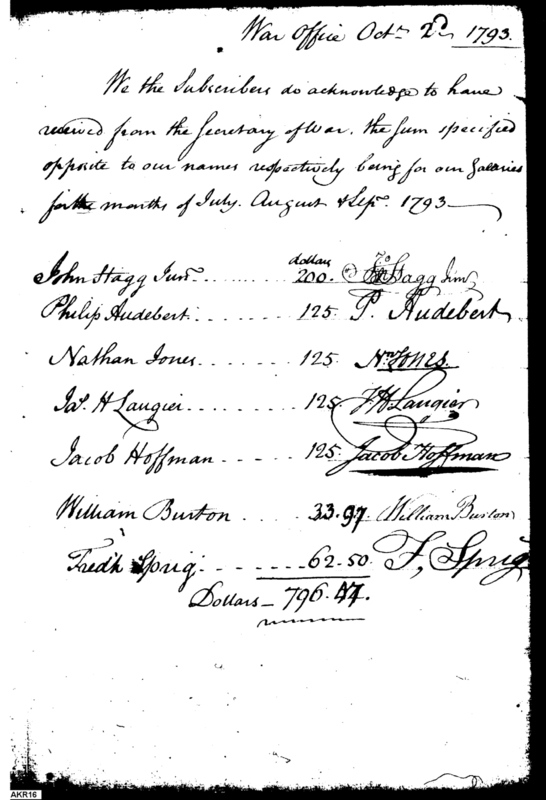 War Office Octr. 2d 1793.
We the Subscribers do acknowledge to have
received from the Secretary of War, the Sum specified
opposite to our names respectively being for our Salaries
for the months of July. August & Sepr. 1793
dollars
John Stagg Junr. ........ 200. Jno Stagg Junr.
Philip Audebert. ....... 125. P. Audebert
Nathan Jones ......... 125 Nn. Jones.
Jas. H Laugier. ........ 125. J H Laugier
Jacob Hoffman ----- 125. Jacob Hoffman
William Burton .... 33.97 William Burton
Fredk Sprig -------- 62.50. F, Sprig
Dollars - 796.47.
AKR16